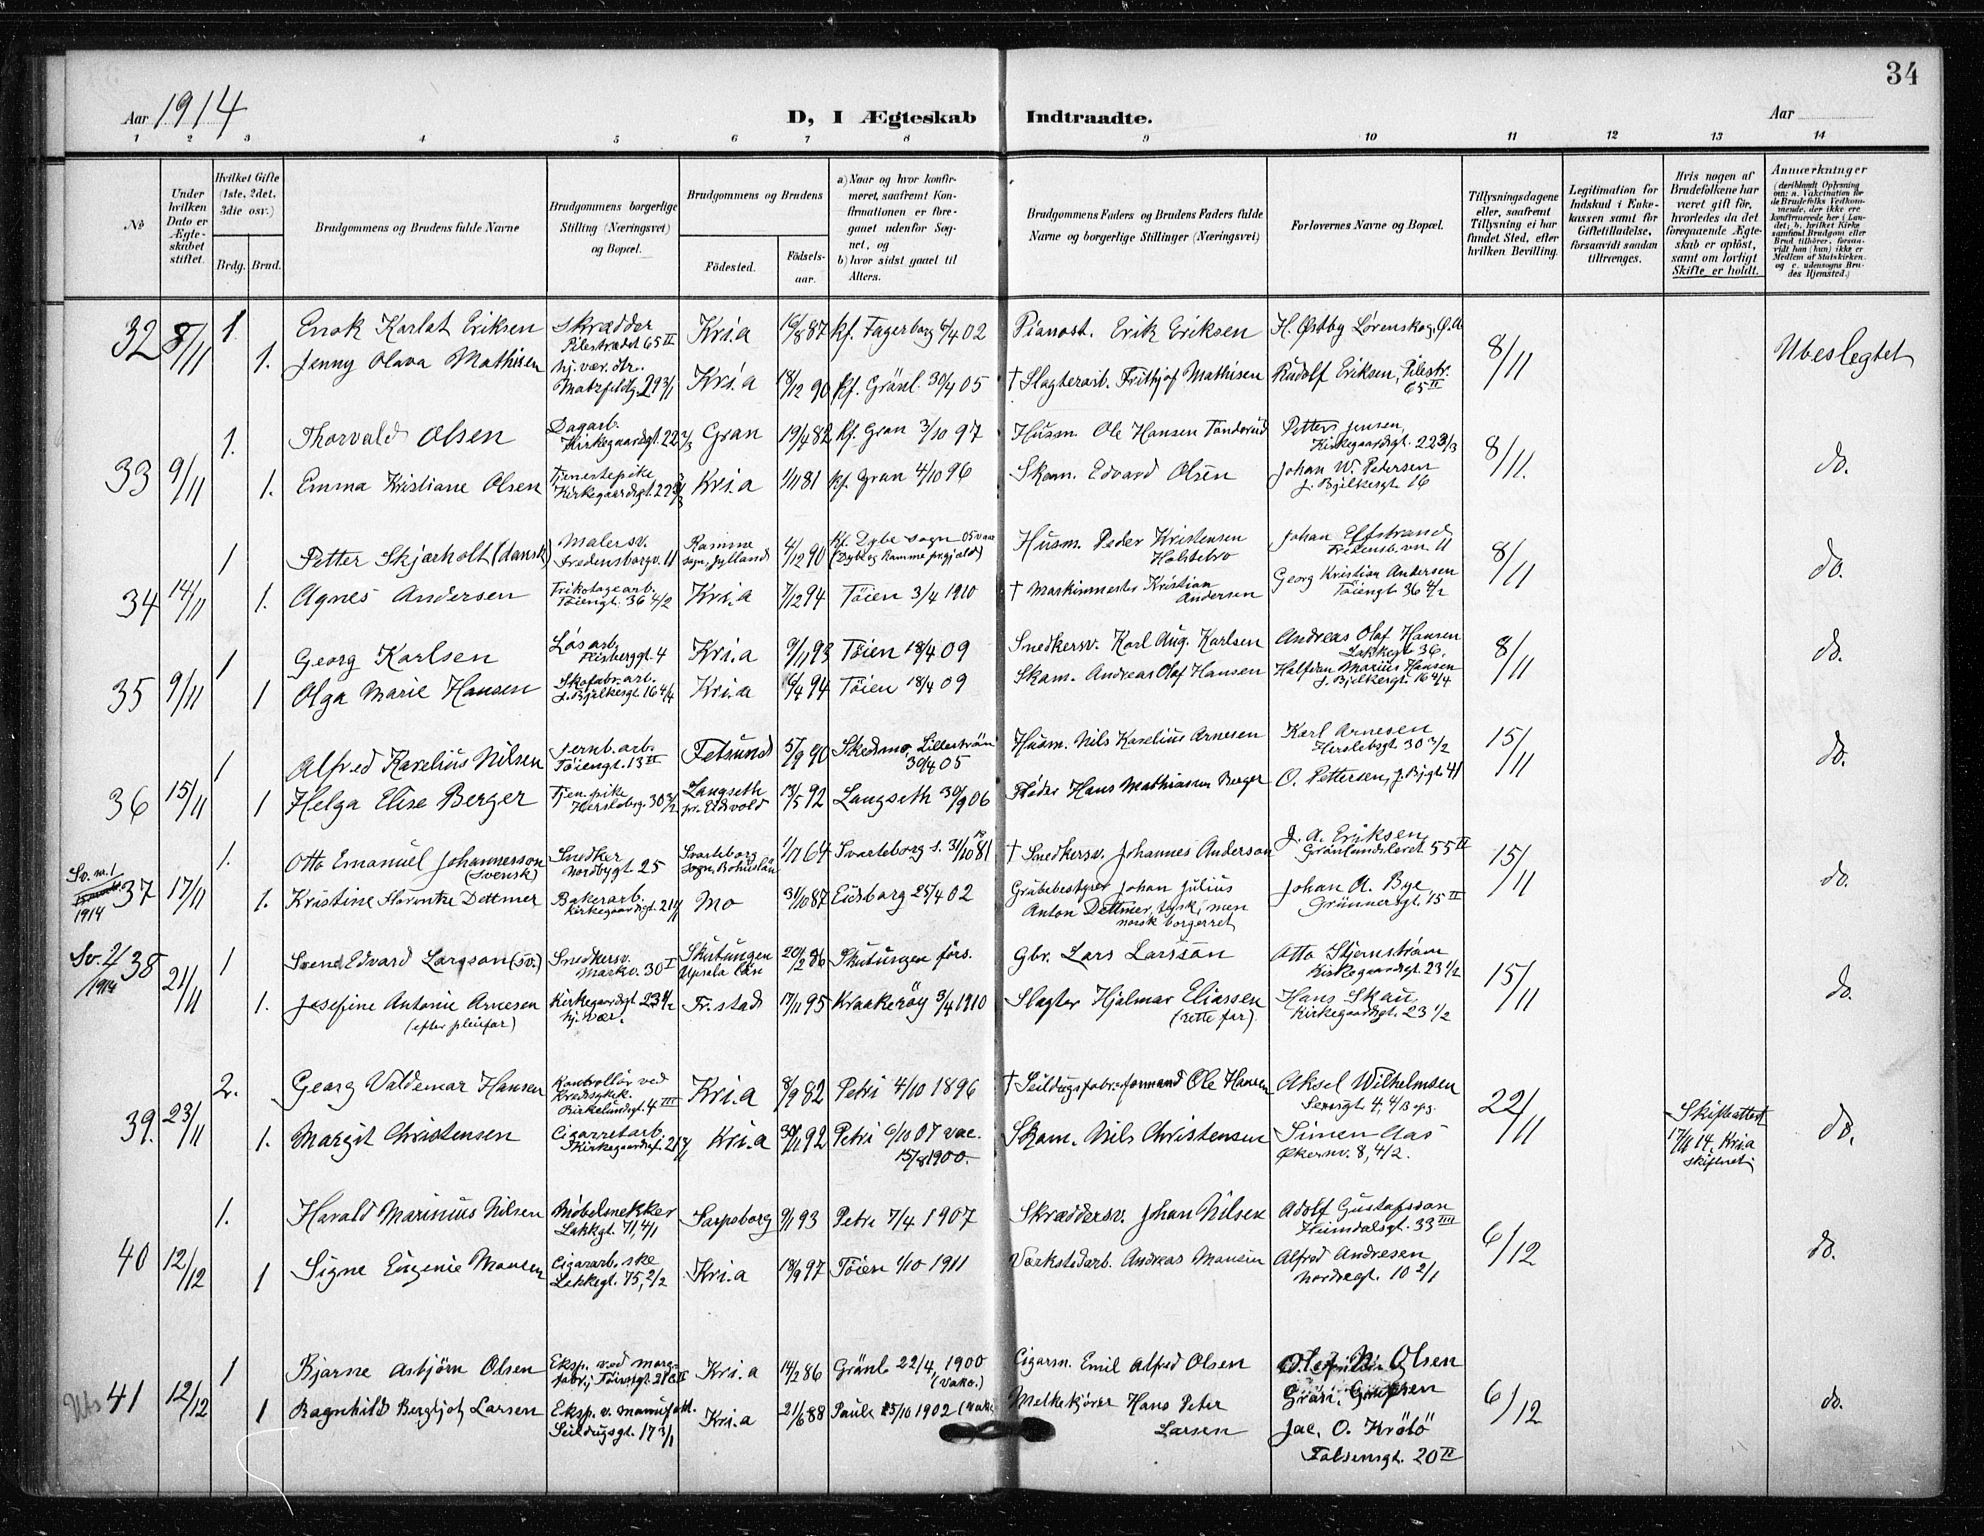 34
Aar 1914
D, I Ægteskab Indtraadte.
Aar
1 2 3 4 5 6 7 8 9 10 11 12 13 14
No
Under hvilken Dato er Ægteskabet stiftet.
Hvilket Gifte (1ste, 2det, 3die osv.)
Brdg. Brud.
Brudgommens og Brudens fulde Navne
Brudgommens borgerlige Stilling (Næringsvei) og Bopæl.
Brudgommens og Brudens
Fødested.
Fødselsaar.
a) Naar og hvor konfirmeret, saafremt Konfirmationen er foregaaet udenfor Sognet, og
b) hvor sidst gaaet til Alters.
Brudgommens Faders og Brudens Faders fulde Navne og borgerlige Stillinger (Næringsvei)
Forlovernes Navne og Bopæl.
Tillysningsdagene eller, saafremt Tillysning ei har fundet Sted, efter hvilken Bevilling.
Legitimation for Indskud i Enkekassen samt for Giftetilladelse, forsaavidt saadan tiltrænges.
Hvis nogen af Brudefolkene har været gift før, hvorledes da det foregaaende Ægteskab er opløst, samt om lovligt Skifte er holdt.
Anmærkninger
(deriblandt Oplysning om: a. Vakcination for de Brudefolks Vedkommende, der ikke ere konfirmerede her i Landet; b. hvilket Kirkesamfund Brudgom eller Brud tilhører, forsaavidt han (hun) ikke er Medlem af Statskirken, og c. udensogns Brudes Hjemsted.)
32 8/11 1 Enok Karlot Eriksen Skrædder Pilestrædet 65 II Kri.a 16/8 87 kf. Fagerborg 6/4 02 Pianost. Erik Eriksen H. Østby Lørenskog, Ø.A 8/11 Ubeslegtet
1. Jenny Olava Mathisen hj. vær. dtr. Kri.a 18/12 90 kf. Grönl. 30/4 05 † Slagterarb. Frithjof Mathisen Rudolf Eriksen, Pilestr. 65 II
33 9/11 1. Thorvald Olsen Dagarb. Kirkegaardsgt. 22 3/3 Gran 19/4 82 kf. Gran 3/10 97 Husm. Ole Hansen Tonderud Petter Jensen, Kirkegaardsgt. 22 3/3 8/11. do.
1. Emma Kristiane Olsen Tjenestepike Kirkegaardsgt. 22 3/3 Kri.a 1/11 81 kf. Gran 4/10 96 Skom. Edvard Olsen Johan W. Pedersen J. Bjelkesgt. 16
34 14/11 1 Petter Skjærholt (dansk) Malersv. Fredensborgv. 11 Ramme sogn, Jylland 4/12 90 Kf. Dybe sogn 05 (Dybe og Ramme pr.gjæld) Husm. Peder Kristensen Holstebro Johan Effstrand Fredensb.vn. 11 8/11 do.
1. Agnes Andersen Trikotagearb. Töiengt. 36 4/2 Kri.a 7/12 94 Töien 3/4 1910 † Maskinmester Kristian Andersen Georg Kristian Andersen Töiengt 36 4/2
35 9/11 1 Georg Karlsen Løsarb. 4 Kri.a 9/11 93 Töien 18/4 09 Snedkersv. Karl Aug. Karlsen Andreas Olaf Hansen Lakkegt 36. 8/11 do.
1 Olga Marie Hansen Skofabr.arb. J. Bjelkesgt. 16 4/4 Kri.a 6/4 94 Töien 18/4 09 Skom. Andreas Olaf Hansen Halfdan Marius Hansen J. Bjelkesgt. 16 4/4
36 15/11 1 Alfred Karelius Nilsen Jernb. arb. Töiengt. 13 II Fetsund 5/9 90 Skedsmo, Lillestrøm 30/4 05 Husm. Nils Karelius Arnesen Karl Arnesen Herslebsgt. 30 3/2 15/11 do.
1 Helga Elise Berger Tjen.pike Herslebsg. 30 3/2 Langseth pr. Eidsvold 13/5 92 Langseth 30/9 06 Hans Mathiasen Berger O. Pettersen, J. Bjgt. 41
Sv. 1914
37 17/11 1. Otto Emanuel Johannesson (svensk) Snedker Nordbygt 25 Svarteborg sogn, Bohuslän 1/11 64 Svarteborg s. 31/10 81 † Snedkersv. Johannes Anderson J. A. Eriksen Grønlandsleret 55 II 15/11 do.
1. Kristine Florentze Dettmer Bakerarb. Kirkegaardsgt. Mo 31/10 87 Eidsborg 25/4 02 Grubebestyrer Johan Julius Anton Dettmer, tysk, men norsk borgerret Johan A. Bye Grünnersgt. 15 II
Sv. 2/1914
38 21/11 1 Svend Edvard Larsson (sv.) Snedkersv. Markv. 30 I Skutungen Upsala län 20/2 86 Skutungen förs. Gbr. Lars Larsson Otto Stjernstrøm Kirkegaardsgt. 23 1/2 15/11 do.
1. Josefine Antonie Arnesen (efter pleiefar) Kirkegaardsgt 23 1/2 hj. vær. Fr.stad 17/11 95 Kraakerøy 3/4 1910 Slagter Hjalmar Eliassen (rette far) Hans Skau, Kirkegaardsgt. 23 1/2
39. 23/11 2. Georg Valdemar Hansen Kontrollör ved Kredssykek. Birkelundgt. 4 III Kri.a 8/9 82 Petri 4/10 1896 † Seildugsfabr.formand Ole Hansen Aksel Wilhelmsen 22/11 Skifteattest 17/11 14. Kria skifteret do.
1. Margit Christensen Cigarretarb. Kri.a 30/11 92 Petri 6/10 07 vac. 15/8 1900. Skom. Nils Christensen Simen Aas Økernv. 8, 4/2.
40 12/12 1. Harald Marinius Nilsen Møbelsnekker Lakkgt. 71, 4/1 Sarpsborg 9/1 93 Petri 7/4 1907 Skræddersv. Johan Nilsen Adolf Gustafsson Heimdalsgt. 33 III 6/12 do.
1 Signe Eugenie Monsen Cigararb.ske Lakkegt. 75, 2/2 Kri.a 18/9 97 Töien 1/10 1911 Værkstedarb. Andreas Monsen Alfred Andresen Nordregt. 10 2/1
41 12/12 1 Bjarne Asbjörn Olsen Eksp. ved marg.fabr., Töiengt. Kri.a 14/2 86 Grönl 22/4, 1900 (vakc.) Cigarm. Emil Alfred Olsen Olaf N. Olsen 6/12 do.
1 Ragnhild Bergljot Larsen Eksp. v. manufakt. Seildugsgt. 17 3/1 Kri.a 21/6 88 Paul 25/10 1902 Melkekjörer Hans Peter Larsen Jac. O. Krötö Falsensgt. 20 II